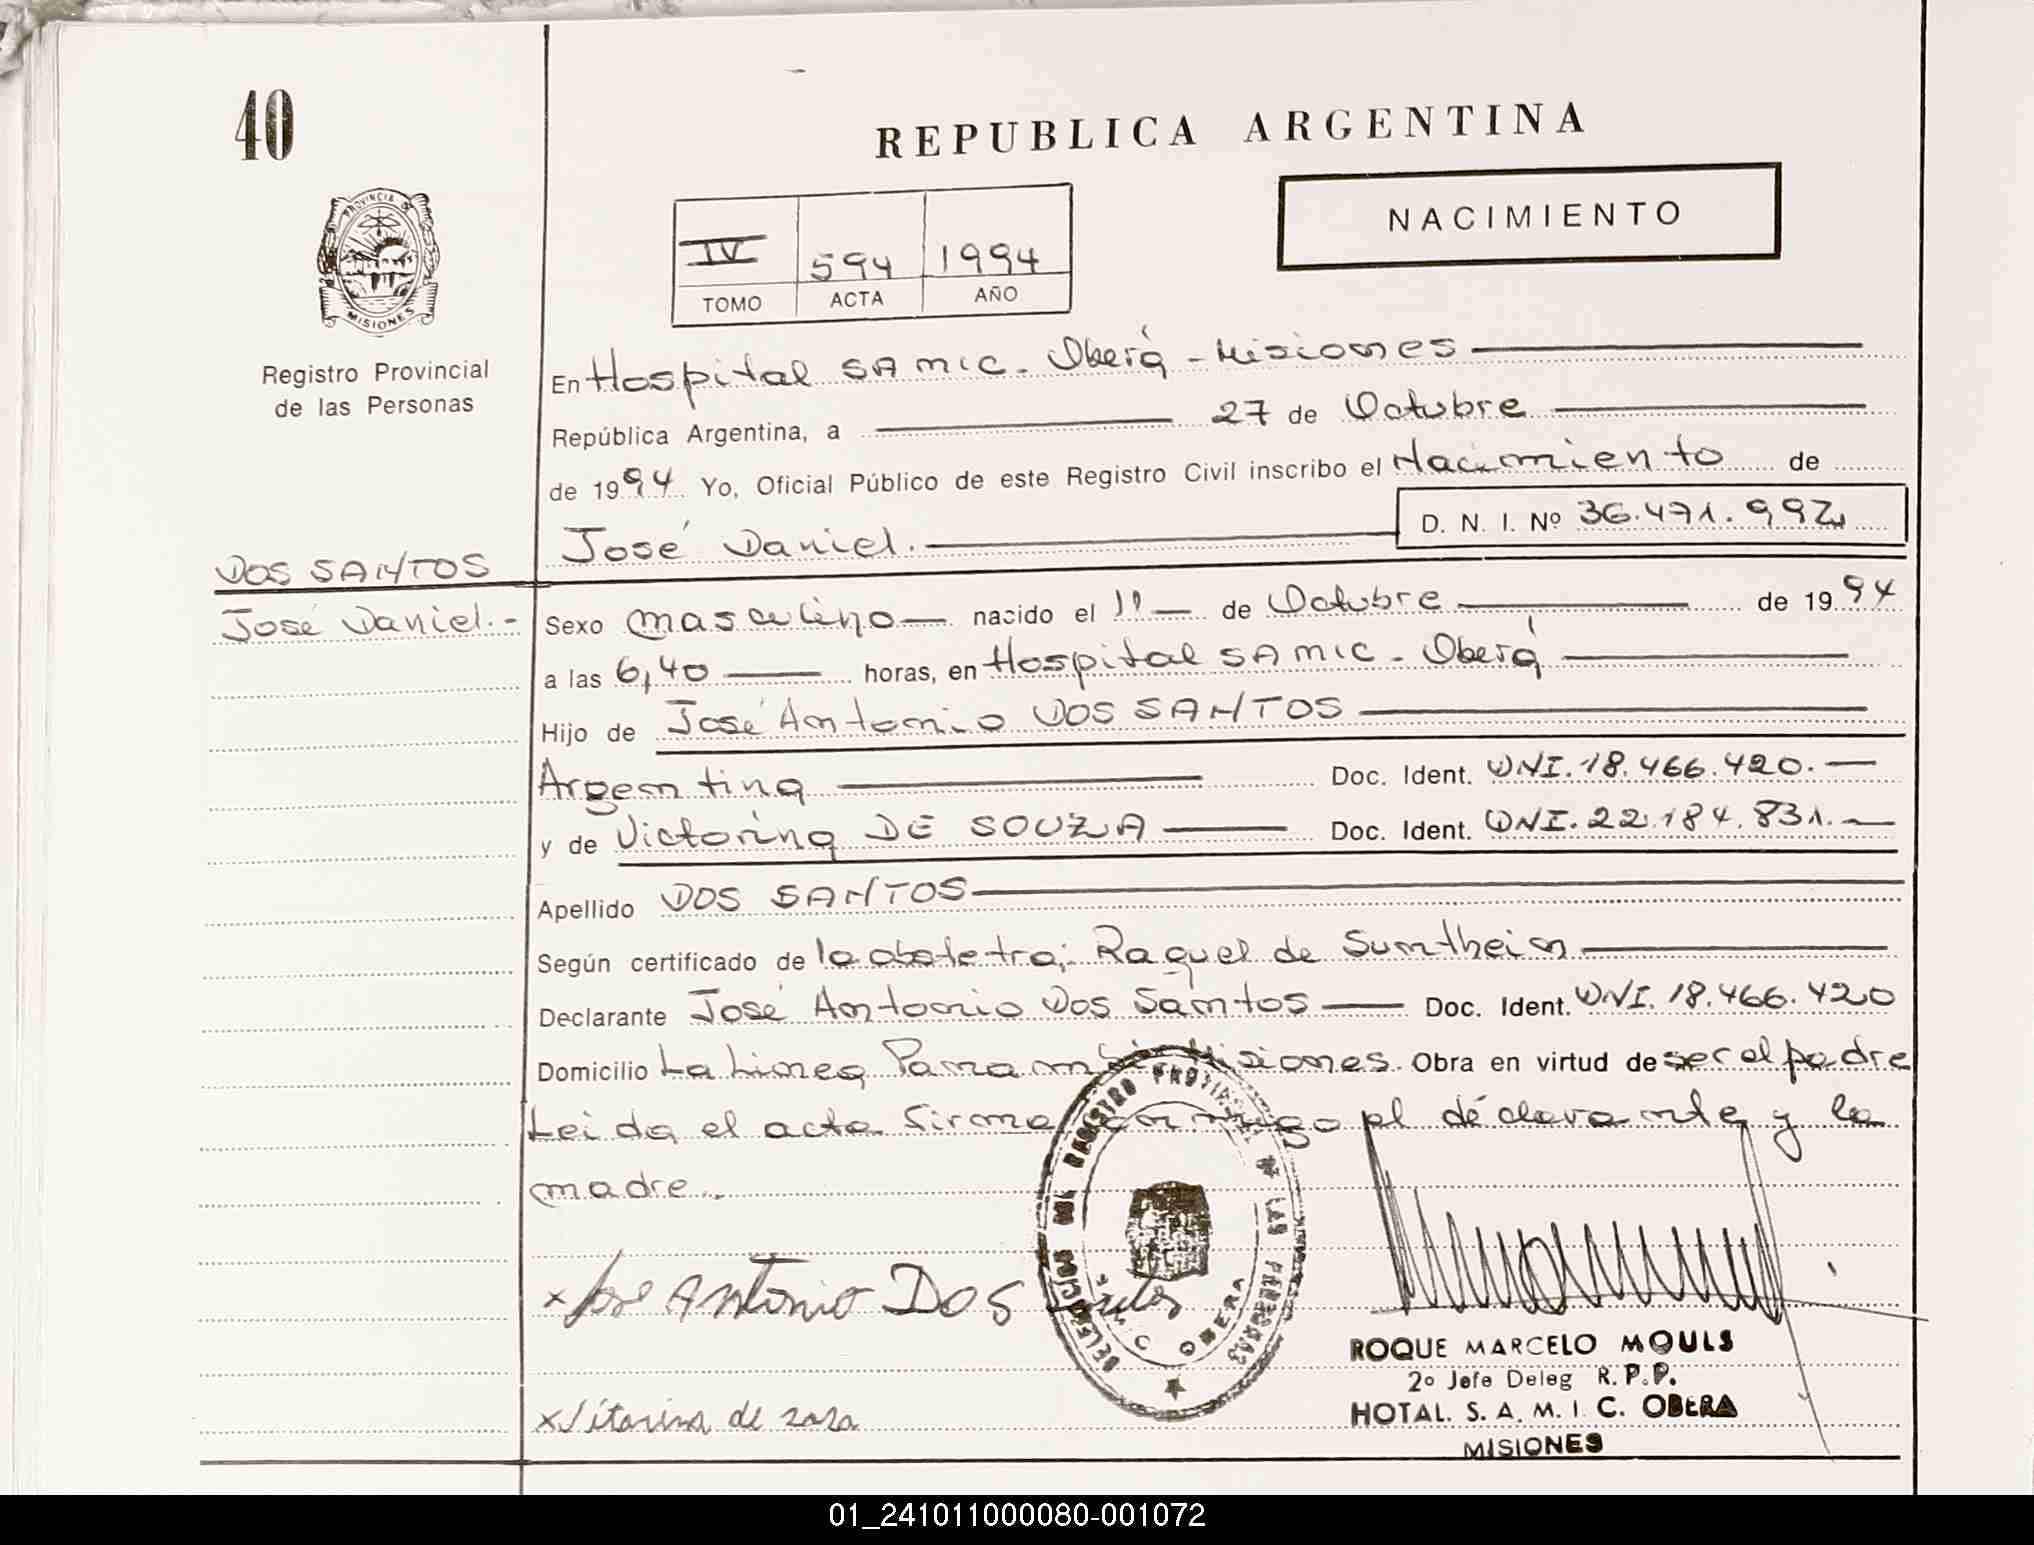 40
REPUBLICA ARGENTINA
PROVINCIA DE
MISIONES
Registro Provincial
de las Personas
IV 594 1994
TOMO ACTA AÑO
NACIMIENTO
En Hospital SAMIC - Oberá - Misiones
República Argentina, a 27 de Octubre
de 1994 Yo, Oficial Público de este Registro Civil inscribo el Nacimiento de
José Daniel. D. N. I. Nº 36.471.992
DOS SANTOS
José Daniel.-
Sexo masculino nacido el 11 de Octubre de 1994
a las 6,40 horas, en Hospital SAMIC - Oberá
Hijo de José Antonio DOS SANTOS
Argentina Doc. Ident. DNI. 18.466.420.-
y de Victorina DE SOUZA Doc. Ident. DNI. 22.184.831.-
Apellido DOS SANTOS
Según certificado de la obstetra; Raquel de
Declarante José Antonio Dos Santos Doc. Ident. DNI. 18.466.420
Domicilio La Linea Misiones. Obra en virtud de ser el padre
Leida el acta firma conmigo el declarante y la
madre..
x José Antonio DOS
x Vitorina de
DEL REGISTRO PROVINCIAL DE LAS PERSONAS
OBERA
ROQUE MARCELO MOULS
2º Jefe Deleg R.P.P.
HOTAL. S. A. M. I. C. OBERA
MISIONES
01_241011000080-001072